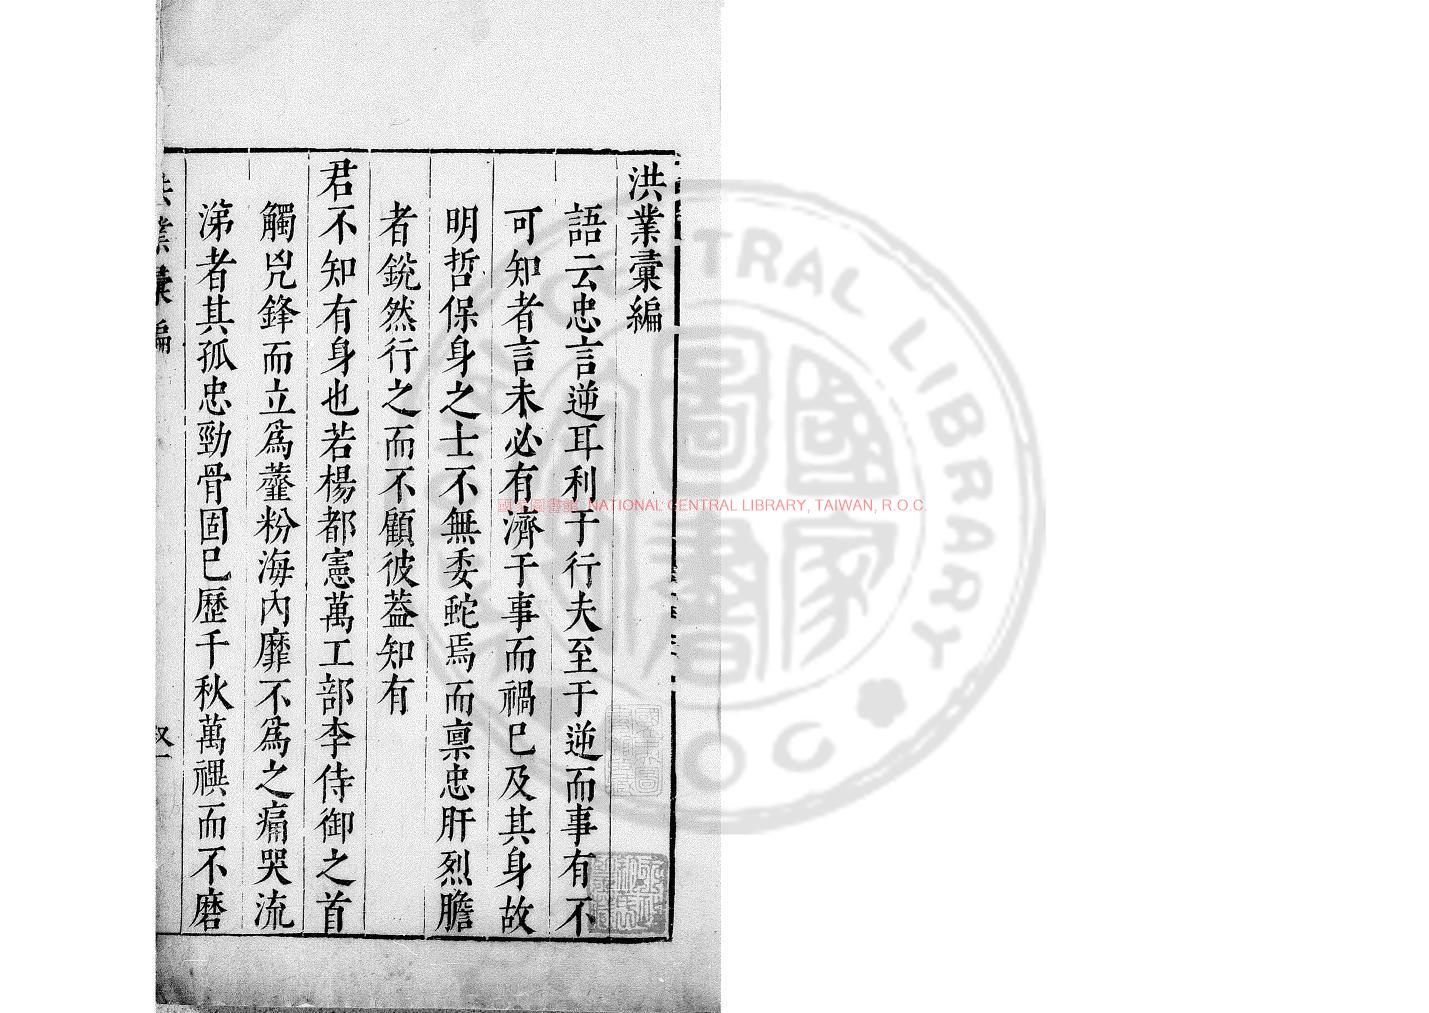 洪業彙編
語云忠言逆耳利于行夫至于逆而事有不
可知者言未必有濟于事而禍巳及其身故
明哲保身之士不無委蛇焉而禀忠肝烈膽
者銳然行之而不顧彼葢知有
君不知有身也若楊都憲萬工部李侍御之首
觸兇鋒而立爲虀粉海內靡不爲之痛哭流
涕者其孤忠勁骨固巳歷千秋萬禩而不磨
業彙編
國家圖書館, NATIONAL CENTRAL LIBRARY, TAIWAN, R.O.C.
CENTRAL LIBRARY
R.O.C.
國家圖書